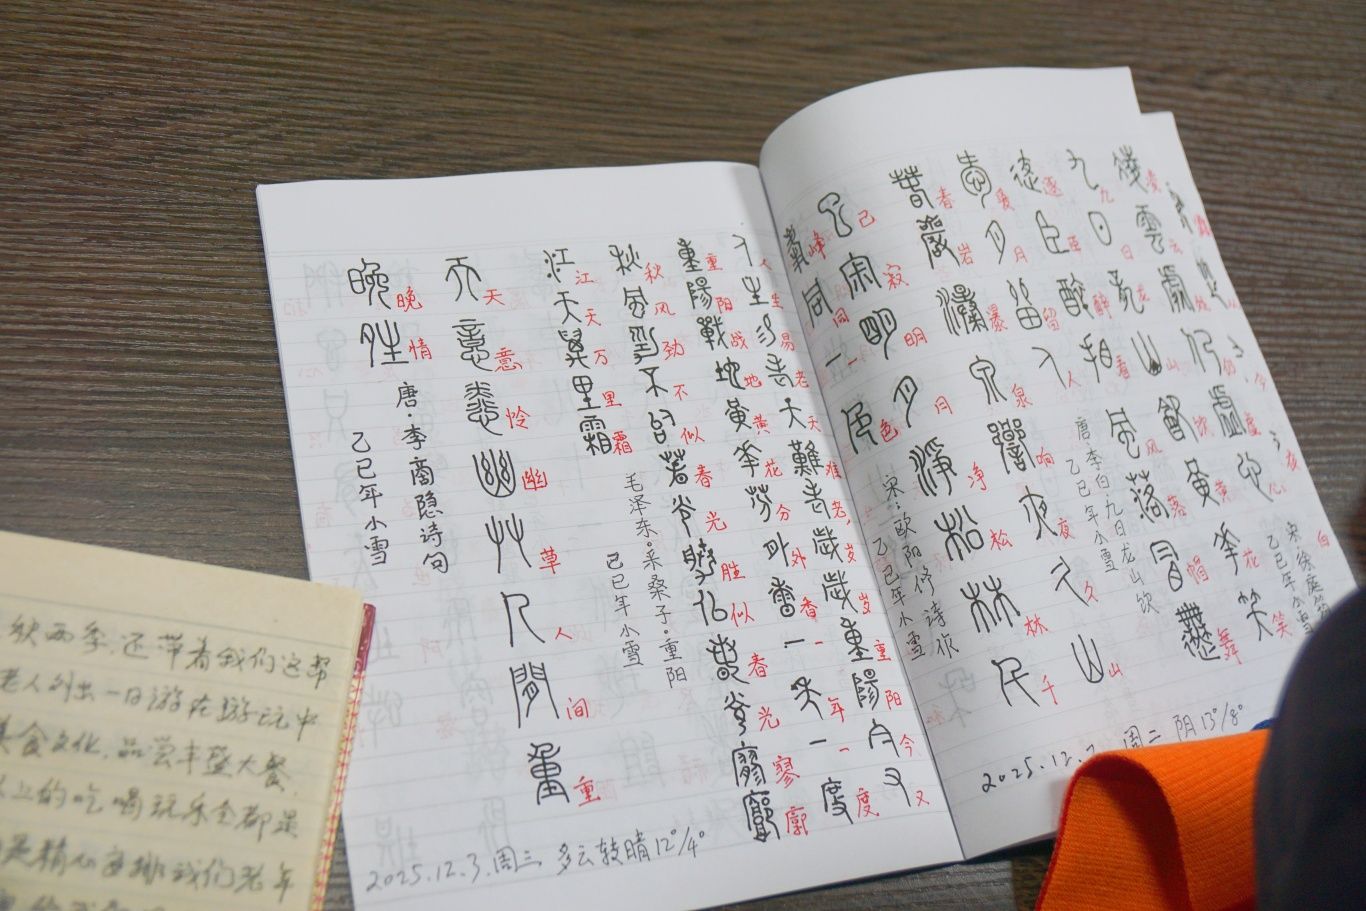 凌云处仍虚心
宋·徐庭筠
乙巳年小雪
九日龙山饮黄花笑
逐臣醉看风落帽舞
爱月留人
唐·李白九日龙山饮
乙巳年小雪
春岩瀑泉响夜久山
已寂明月净松林千
峰同一色
宋·欧阳修诗句
乙巳年小雪
2025.12.2 周二 阴13°/8°
人生易老天难老,岁岁重阳今又
重阳战地黄花分外香一年一度
秋风劲不似春光胜似春光寥廓
江天万里霜
毛泽东·采桑子·重阳
己巳年小雪
天意怜幽草人间重
晚情
唐·李商隐诗句
乙巳年小雪
2025.12.3.周三 多云转晴12°/4°
秋两季,还带着我们这帮
老人列出一日游在游玩中
美食文化,品尝丰盛大餐
上的吃喝玩乐全都是
是精心安排我们老年